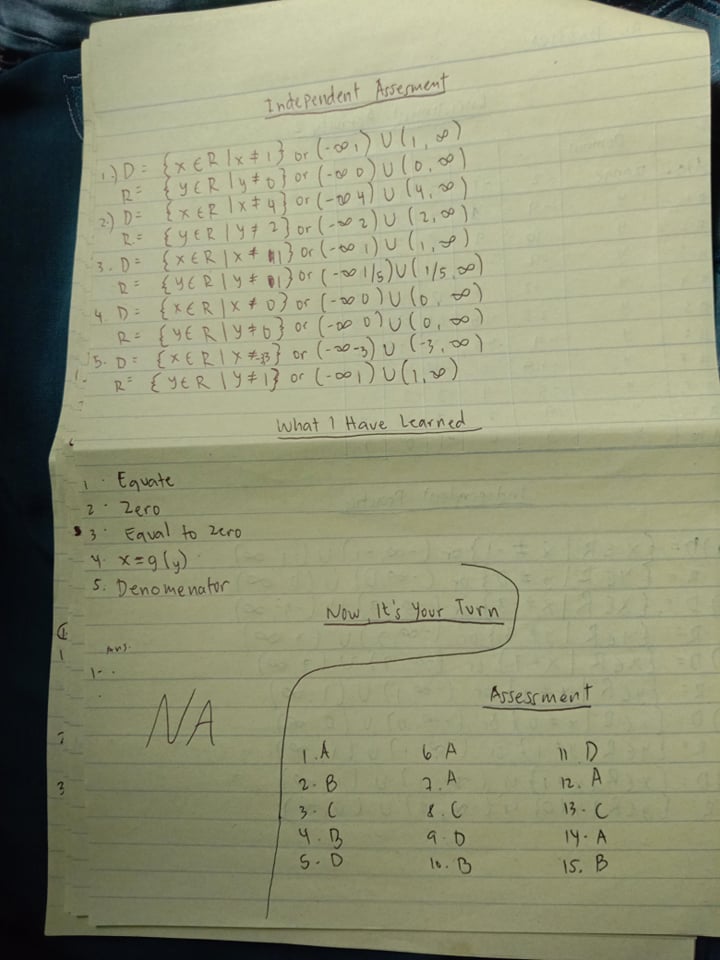 Independent Assesment
1.) D = {x ∈ R | x ≠ 1} or (-∞ 1) U (1, ∞)
R = {y ∈ R | y ≠ 0} or (-∞ 0) U (0, ∞)
2.) D = {x ∈ R | x ≠ 4} or (-∞ 4) U (4, ∞)
R = {y ∈ R | y ≠ 2} or (-∞ 2) U (2, ∞)
3. D = {x ∈ R | x ≠ 1} or (-∞ 1) U (1, ∞)
R = {y ∈ R | y ≠ 1} or (-∞ 1/5) U (1/5, ∞)
4. D = {x ∈ R | x ≠ 0} or (-∞ 0) U (0, ∞)
R = {y ∈ R | y ≠ 0} or (-∞ 0) U (0, ∞)
5. D = {x ∈ R | x ≠ -3} or (-∞ -3) U (-3, ∞)
R = {y ∈ R | y ≠ 1} or (-∞ 1) U (1, ∞)
What I Have Learned
1. Equate
2. Zero
3. Equal to zero
4. x = g(y)
5. Denomenator
Now, It's Your Turn
Ans.
1-.
NA
Assessment
1. A 6. A 11. D
2. B 7. A 12. A
3. C 8. C 13. C
4. B 9. D 14. A
5. D 10. B 15. B